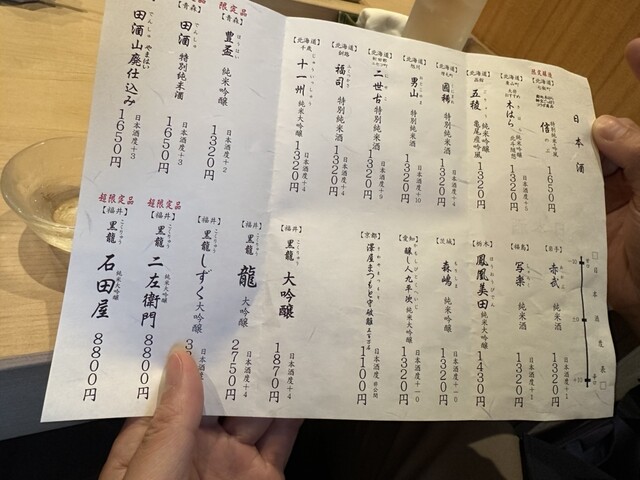 日本酒
限定醸造
【北海道】
信
特別純米吟風
1650円
【北海道】
木はら
純米吟醸
北斗随想
1320円
日本酒度+5
【北海道】
五稜
純米吟醸
亀尾産吟風
1320円
【北海道】
國稀
特別純米酒
1320円
日本酒度+4
【北海道】
旭川
男山
特別純米酒
1320円
日本酒度+10
【北海道】
二世古
特別純米酒
1320円
日本酒度+9
【北海道】
釧路
福司
特別純米酒
1320円
日本酒度+4
【北海道】
千歳
十一州
純米大吟醸
1320円
日本酒度+4
限定品
豊盃
純米吟醸
1320円
日本酒度+2
【青森】
田酒
特別純米酒
1650円
日本酒度+3
でんしゅ やまはい
田酒山廃仕込み
1650円
日本酒度+3
日本酒度表
【岩手】
赤武
純米酒
1320円
日本酒度+1
【福島】
写楽
純米酒
1320円
日本酒度+1
【栃木】
鳳凰美田
純米大吟醸
1430円
【茨城】
森嶋
純米吟醸
1320円
【愛知】
醸し人九平次
純米大吟醸
1320円
【京都】
澤屋まつもと守破離
1100円
日本酒度 非公開
【福井】
黒龍 大吟醸
1870円
日本酒度+4
【福井】
龍 大吟醸
2750円
日本酒度+4
【福井】
黒龍しずく
大吟醸
日本酒度
超限定品
【福井】
黒龍 二左衛門
純米大吟醸
8800円
超限定品
【福井】
黒龍 石田屋
純米大吟醸
8800円